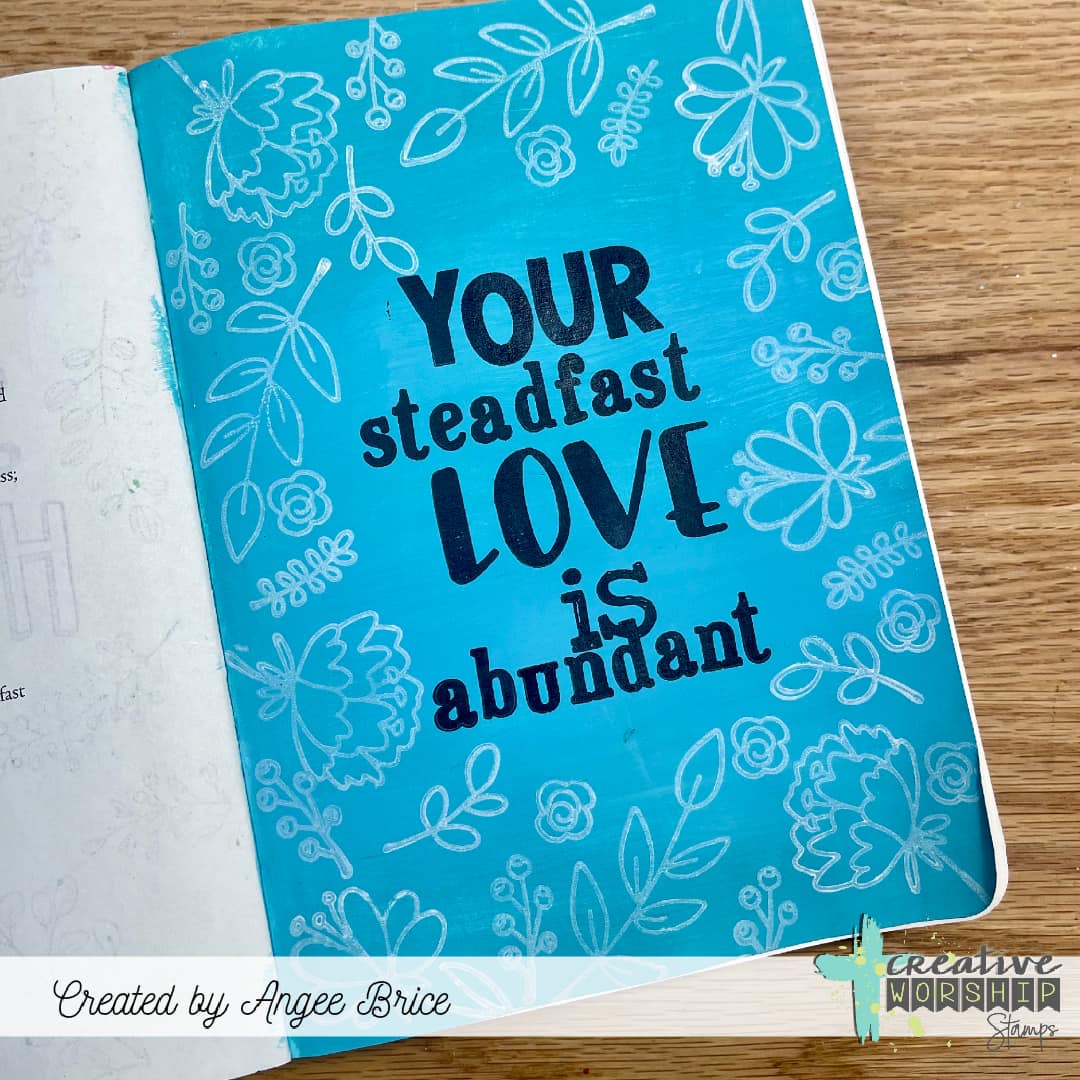 YOUR
steadfast
LOVE
is
abundant
ss;
H
fast
Created by Angee Brice
creative
WORSHIP
Stamps